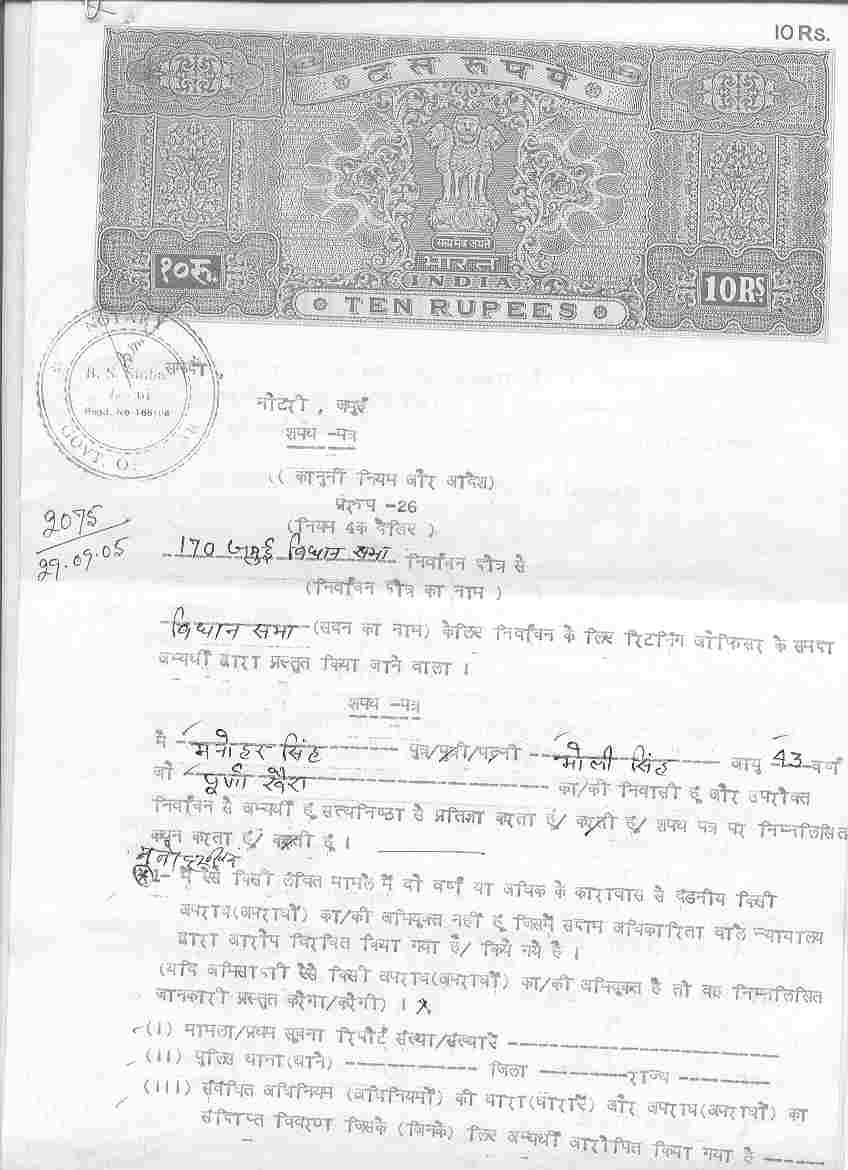 10 Rs.
दस रूपये
सत्यमेव जयते
भारत
INDIA
१०रु.
10RS
TEN RUPEES
NOTARY
Regd. No
GOVT. O
समक्ष
नोटरी , जमुई
शपथ -पत्र
( कानुनी नियम और आदेश)
प्ररूप -26
(नियम 4क देखिए )
170 जमुई विधान सभा निर्वाचन क्षेत्र से
(निर्वाचन क्षेत्र का नाम )
2075
29.09.05
विधान सभा (सदन का नाम) केलिए निर्वाचन के लिए रिटर्निंग ऑफिसर के समक्ष
अभ्यर्थी द्वारा प्रस्तुत किया जाने वाला ।
शपथ -पत्र
मैं मनोहर सिंह पुत्र/पुत्री/पत्नी मोली सिंह आयु 43 वर्ष
जो पूर्णा खैरा का/की निवासी हूं और उपरोक्त
निर्वाचन से अभ्यर्थी हूं सत्यनिष्ठा से प्रतिज्ञा करता हूं/ करती हूं/ शपथ पत्र पर निम्नलिखित
कथन करता हूं/ करती हूं ।
1- मैं ऐसे किसी लंबित मामले में दो वर्ष या अधिक के कारावास से दंडनीय किसी
अपराध(अपराधों) का/की अभियुक्त नहीं हूं जिसमें सक्षम अधिकारिता वाले न्यायालय
द्वारा आरोप विरचित किया गया है/ किये गये है ।
(यदि अभिसाक्षी ऐसे किसी अपराध(अपराधों) का/की अभियुक्त है तो वह निम्नलिखित
जानकारी प्रस्तुत करेगा/करेगी) ।
(i) मामला/प्रथम सूचना रिपोर्ट संख्या/संख्याएं
(ii) पुलिस थाना(थाने) जिला राज्य
(iii) संबंधित अधिनियम (अधिनियमों) की धारा(धाराएं) और अपराध(अपराधों) का
संक्षिप्त विवरण जिसके (जिनके) लिए अभ्यर्थी आरोपित किया गया है